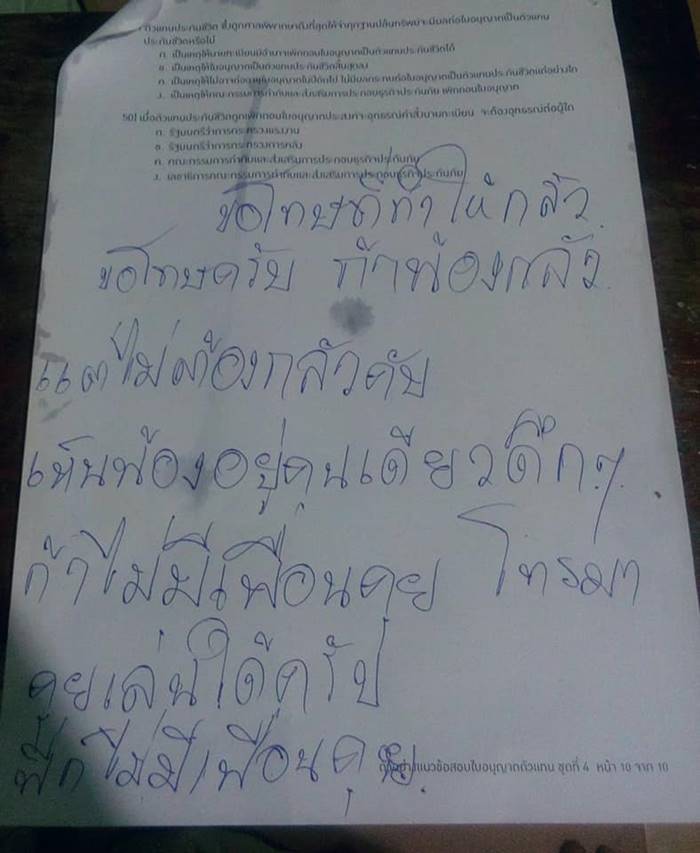 ตัวแทนประกันชีวิต ซึ่งถูกศาลพิพากษาถึงที่สุดให้จำคุกฐานปล้นทรัพย์จะมีผลต่อใบอนุญาตเป็นตัวแทน
ประกันชีวิตหรือไม่
ก. เป็นเหตุให้นายทะเบียนมีอำนาจเพิกถอนใบอนุญาตเป็นตัวแทนประกันชีวิตได้
ข. เป็นเหตุให้ใบอนุญาตเป็นตัวแทนประกันชีวิตสิ้นสุดลง
ค. เป็นเหตุให้ไม่อาจต่ออายุใบอนุญาตในปีถัดไป ไม่มีผลกระทบต่อใบอนุญาตเป็นตัวแทนประกันชีวิตแต่อย่างใด
ง. เป็นเหตุให้คณะกรรมการกำกับและส่งเสริมการประกอบธุรกิจประกันภัย เพิกถอนใบอนุญาต
50) เมื่อตัวแทนประกันชีวิตถูกเพิกถอนใบอนุญาตประสงค์จะอุทธรณ์คำสั่งนายทะเบียน จะต้องอุทธรณ์ต่อผู้ใด
ก. รัฐมนตรีว่าการกระทรวงแรงงาน
ข. รัฐมนตรีว่าการกระทรวงการคลัง
ค. คณะกรรมการกำกับและส่งเสริมการประกอบธุรกิจประกันภัย
ง. เลขาธิการคณะกรรมการกำกับและส่งเสริมการประกอบธุรกิจประกันภัย
ขอโทษที่ทำให้กลัว
ขอโทษครับ ถ้าน้องกลัว
แต่ไม่ต้องกลัวคับ
เห็นน้องอยู่คนเดียวดึกๆ
ถ้าไม่มีเพื่อนคุย โทรมา
คุยเล่นได้ครับ
พี่ก็ไม่มีเพื่อนคุย
แนวข้อสอบใบอนุญาตตัวแทน ชุดที่ 4 หน้า 10 จาก 10